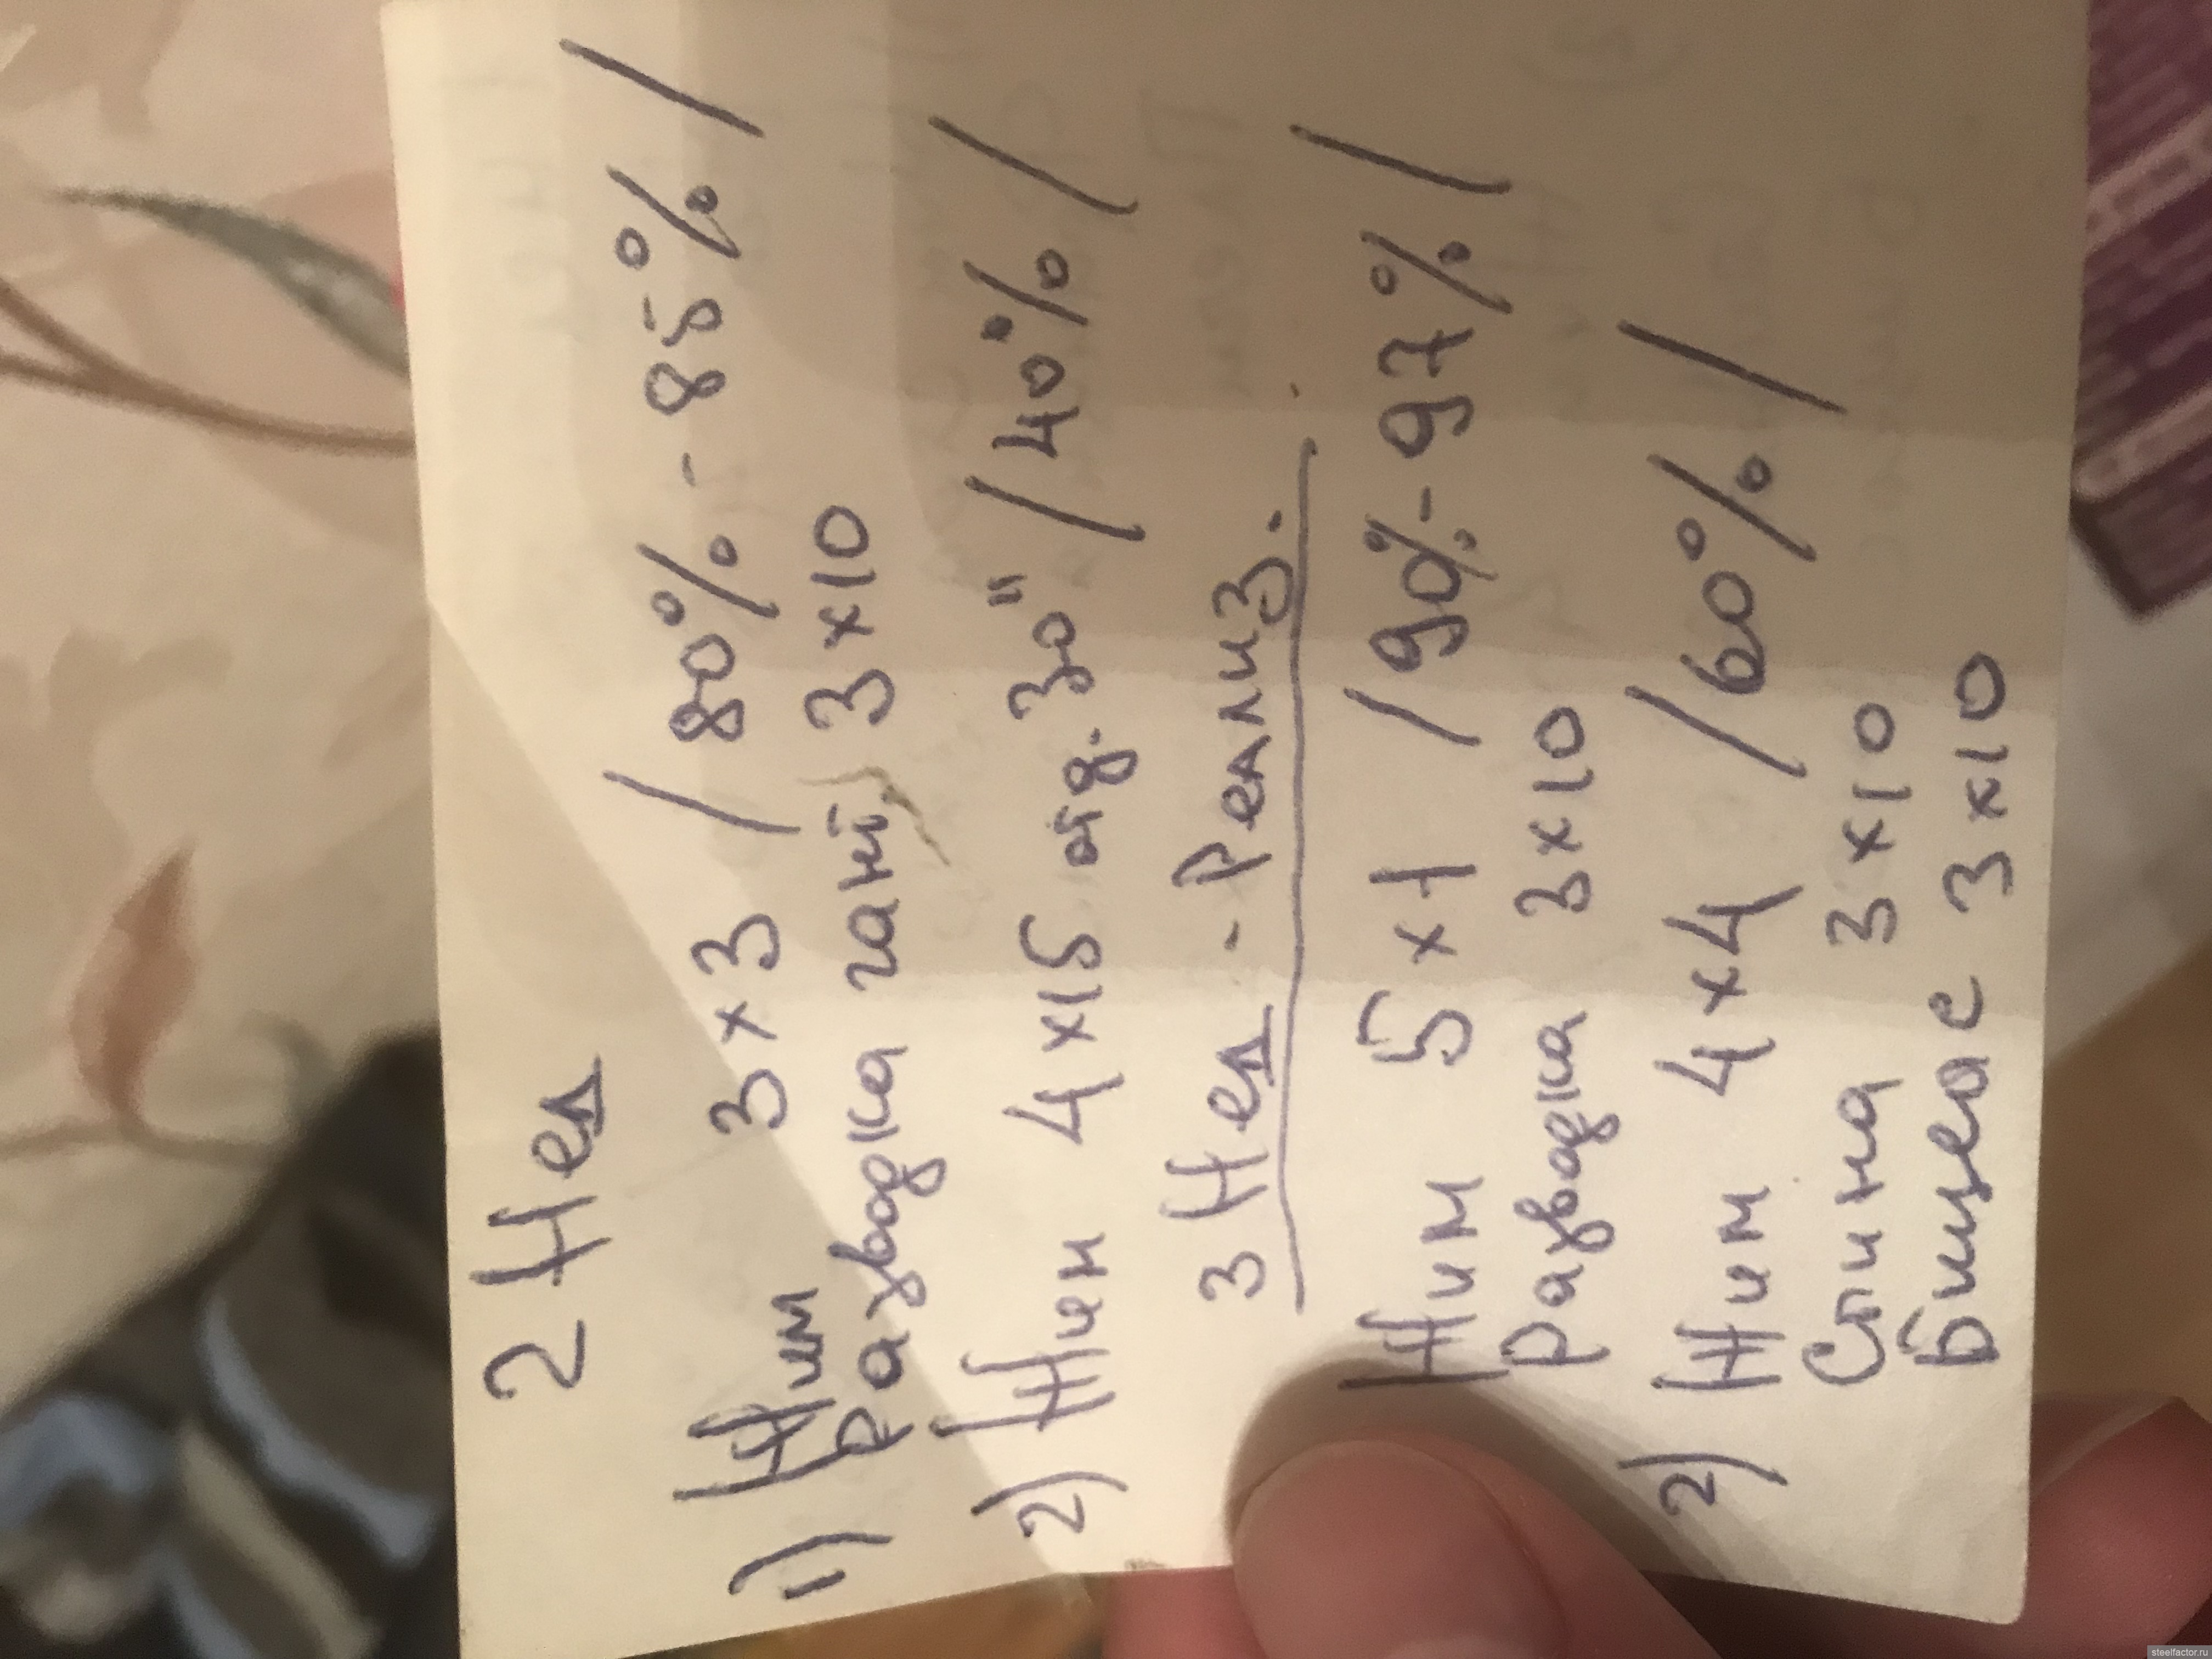 2 Нед
1) Жим 3 х 3 / 80% - 85% /
Разводка гант. 3 х 10
2) Жим 4 х 15 отд. 30" / 40% /
3 Нед - Реализ.
Жим 5 х 1 / 90% - 97% /
Разводка 3 х 10
2) Жим 4 х 4 / 60% /
Спина 3 х 10
Бицепс 3 х 10
steelfactor.ru